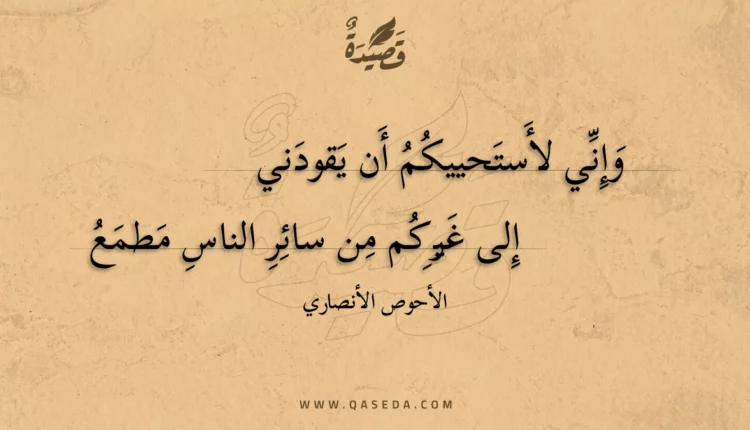 قَصِيْدَةٌ
وَإِنِّي لأَستَحييكُمُ أَن يَقودَني
إِلى غَيرِكُم مِن سائِرِ الناسِ مَطمَعُ
الأحوص الأنصاري
WWW.QASEDA.COM